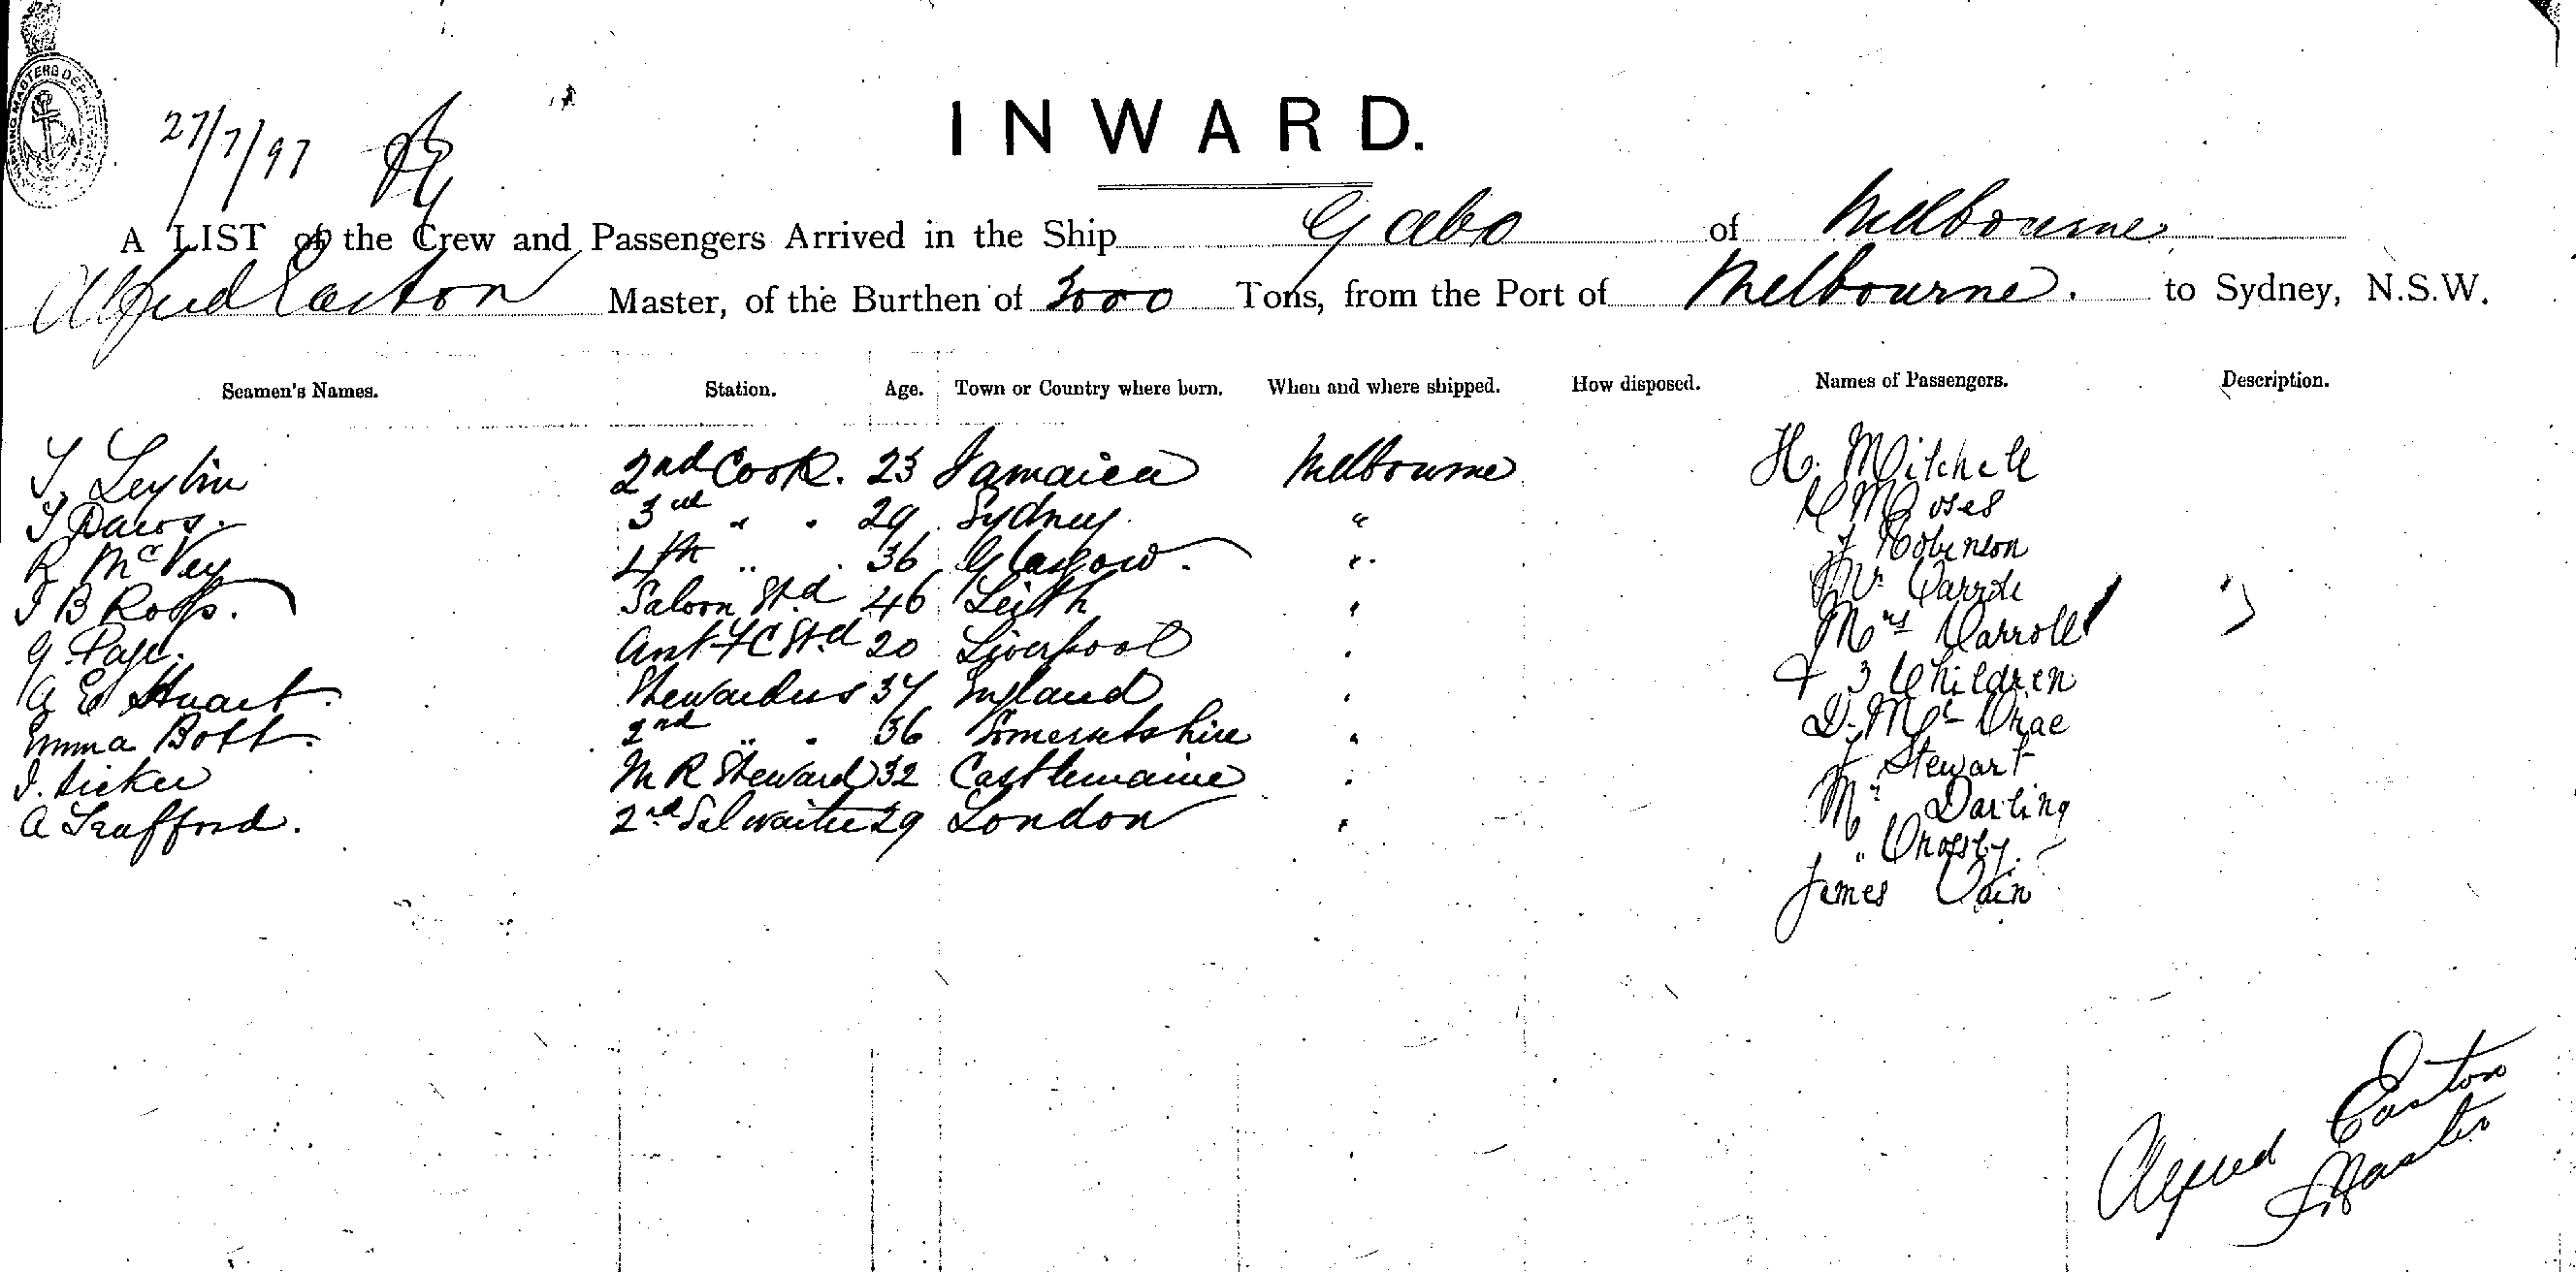 SHIPPING MASTERS DEPARTMENT
27/7/97
INWARD.
A LIST of the Crew and Passengers Arrived in the Ship Gabo of Melbourne
Alfred Easton Master, of the Burthen of 3000 Tons, from the Port of Melbourne. to Sydney, N.S.W.
Seamen's Names. Station. Age. Town or Country where born. When and where shipped. How disposed. Names of Passengers. Description.
2nd Cook. 23 Jamaica Melbourne H. Mitchell
3rd " " 29 Sydney. " Moses
R McVey 4th " " 36 Glasgow. " J Robinson
J B Ross. Saloon Std 46 Leith " Mr Carroll
G Page. Asst F C Std 20 Liverpool " Mrs Carroll
A E Stuart. Stewardess 37 England " & 3 Children
Emma Bott. 2nd " " 36 Somersetshire " D. McCrae
M R Steward 32 Castlemaine " J Stewart
A Trafford. 2nd Sal waiter 29 London " Mr Darling
" Crossby.
James Cain
Alfred Easton
Master